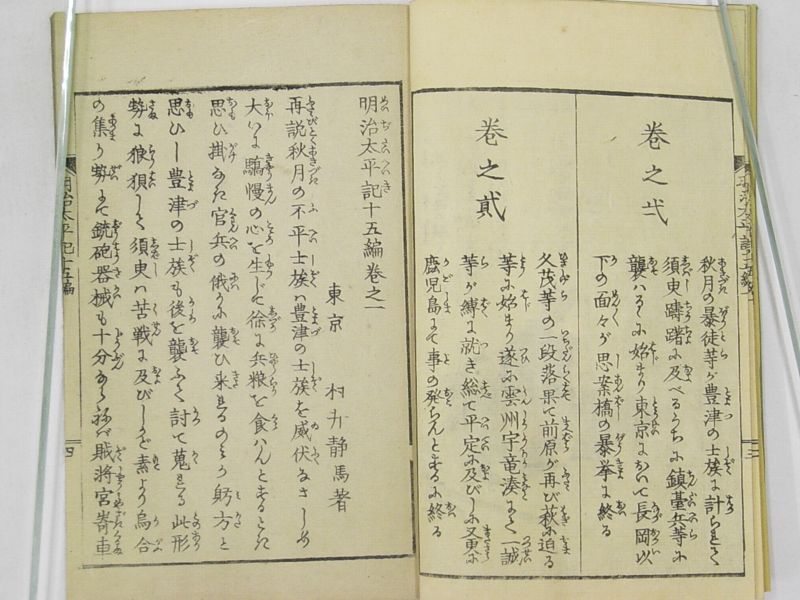 巻之弐
秋月の暴徒等が豊津の士族に計られて
須臾躊躇に及べるうちに鎮臺兵等に
襲はるゝに始まり東京において長岡以
下の面々が思案橋の暴挙に終る
巻之貳
久茂等の一段落果て前原が再び萩に迫る
等に始まり遂に雲州宇竜湊にて一誠
等が縛に就き総て平定に及びしに又更に
鹿児島にて事の発らんとするに終る
明治太平記十五編巻之一
東京 村井静馬著
再説秋月の不平士族は豊津の士族を威伏なさしめ
大いに驕慢の心を生じて徐に兵粮を食はんとするとき
思ひ掛なき官兵の俄かに襲ひ来るのミか躬方と
思ひし豊津の士族も後を襲ふて討て蒐る此形
勢に狼狽して須臾は苦戦に及びしかど素より烏合
の集り勢にて銃砲器械も十分ならねば賊将宮嵜車
明治太平記十五編
四